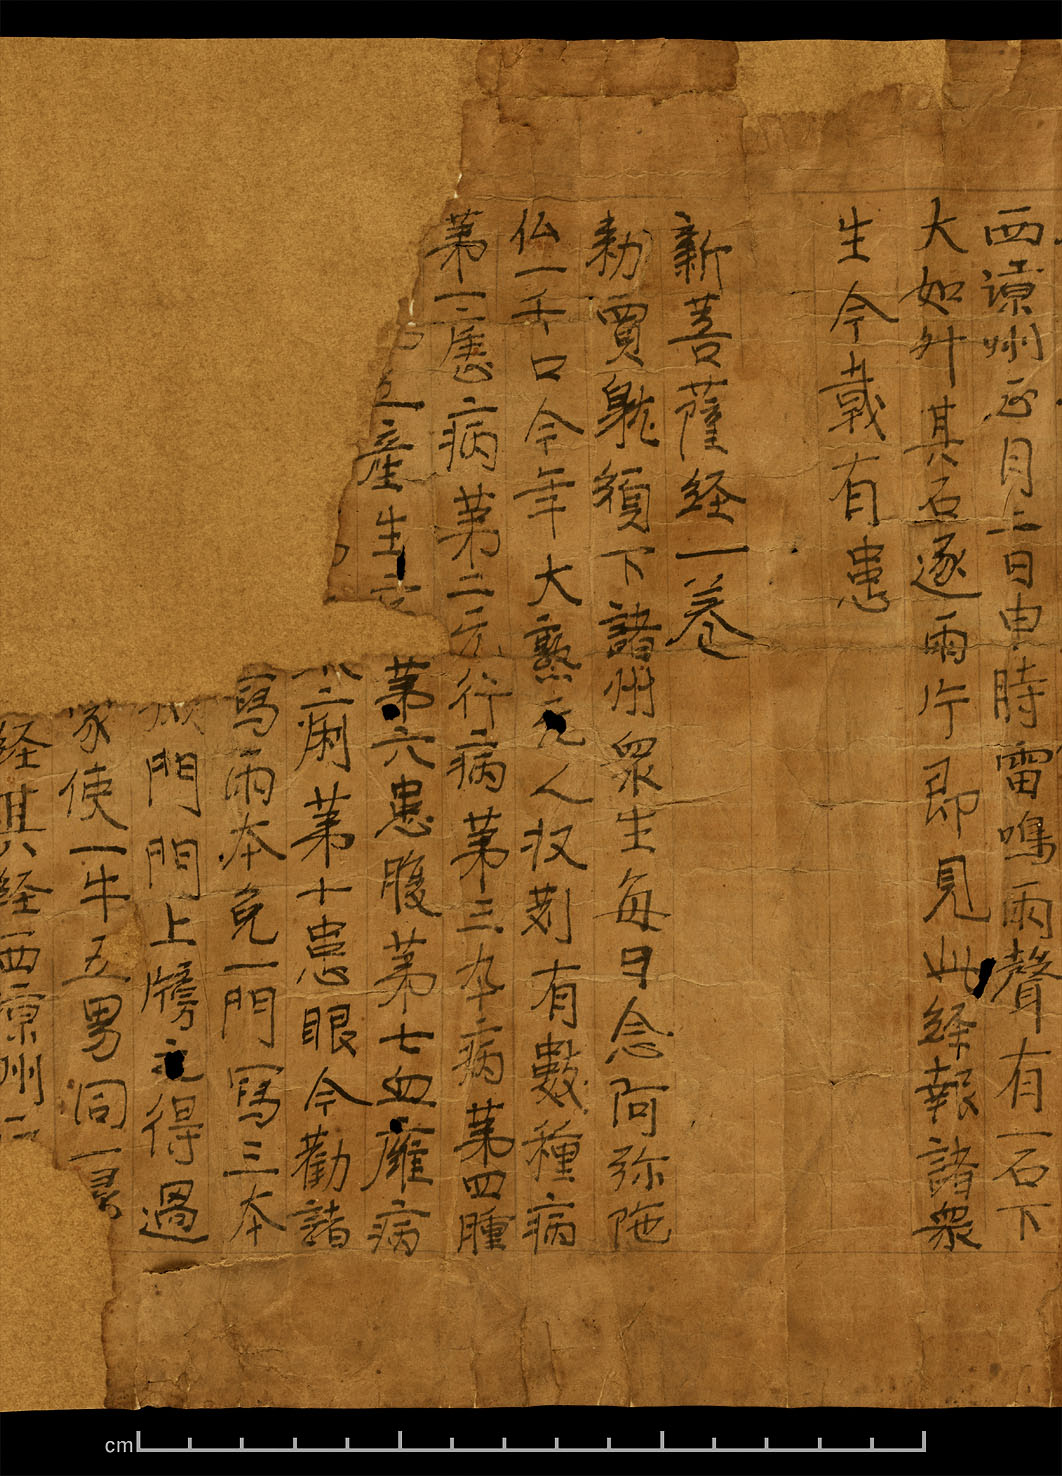 西凉州正月二日申時雷鳴雨聲有一石下
大如卅其石遂雨片即見此経報諸衆
生今載有患
新菩薩経一卷
勑賈躭頒下諸州衆生每日念阿弥陁
仏一千口今年大熟无人收刈有數種病
第一瘧病第二天行病第三卒病第四腫
産生 第六患腹第七血癰病
痢第十患眼今勸諸
寫兩本免一門寫三本
門門上牓之得過
家使一牛五男同一
経其経西凉州
cm